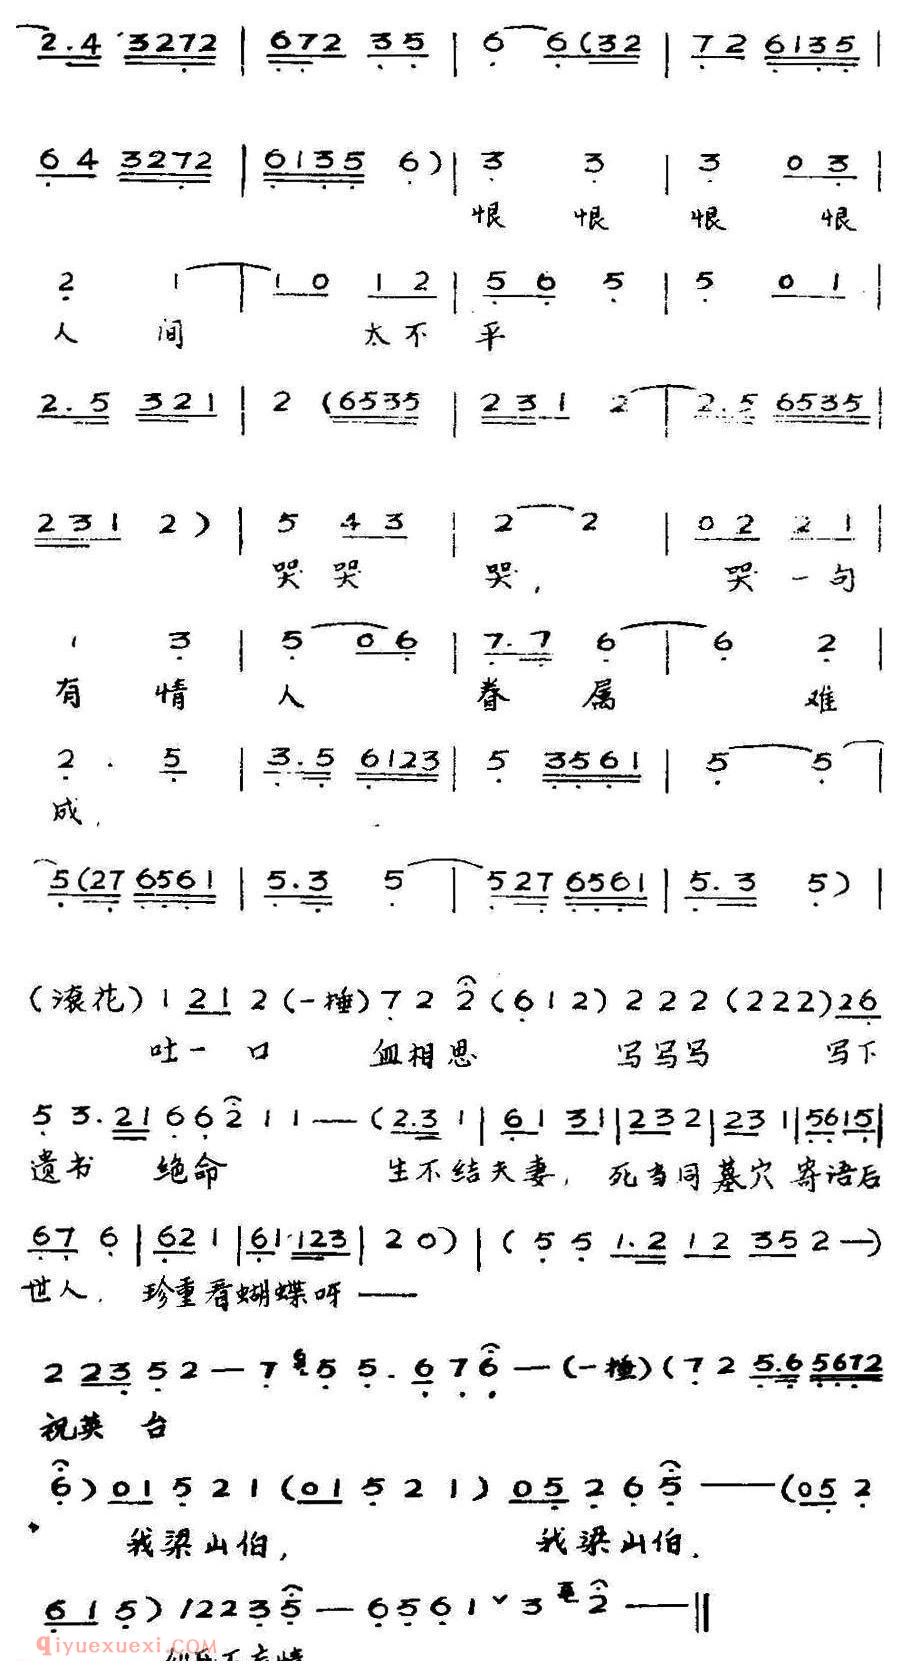 2.4 3272 | 672 35 | 6 6(32 | 72 6135 |
64 3272 | 6135 6) | 3 3 | 3 03 |
恨 恨 恨 恨
2 1 | 10 12 | 56 5 | 5 01 |
人 间 太不 平
2.5 321 | 2 (6535 | 231 2 | 2.5 6535 |
231 2) | 5 43 | 2 2 | 02 21 |
哭 哭 哭, 哭 一 句
1 3 | 5 06 | 7.7 6 | 6 2 |
有 情 人 眷 属 难
2. 5 | 3.5 6123 | 5 3561 | 5 5 |
成,
5(27 6561 | 5.3 5 | 527 6561 | 5.3 5) |
(滚花) 1 21 2 (一捶) 7 2 2 (612) 222 (222) 26
吐一 口 血相思 写写写 写下
5 3. 21 6 6 2 1 1 — (2.3 1 | 61 31 | 23 2 | 23 1 | 5615 |
遗书 绝命 生不结夫妻, 死当同墓穴 寄语后
67 6 | 62 1 | 61·123 | 2 0) | (5 5 1.2 12 35 2 —)
世人, 珍重看蝴蝶呀 ——
2 23 5 2 — 7 5 5. 6 7 6 — (一捶) (7 2 5.6 5672
祝英 台
6) 01 5 2 1 (01 5 2 1) 05 2 6 5 —— (05 2
我梁山伯, 我梁山伯,
6 1 5) 1 2 2 3 5 — 6 5 6 1 ˇ 3 2 —— ‖
qiyuexuexi.com